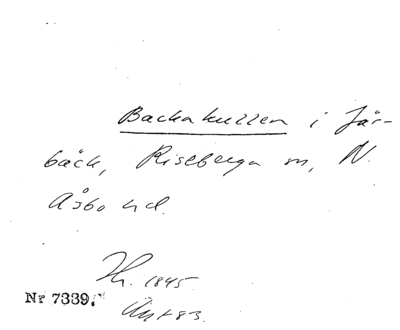 Backakullen i Fär-
bäck, Riseberga sn, N.
Åsbo hd.
1845
83.
Nr 7339.